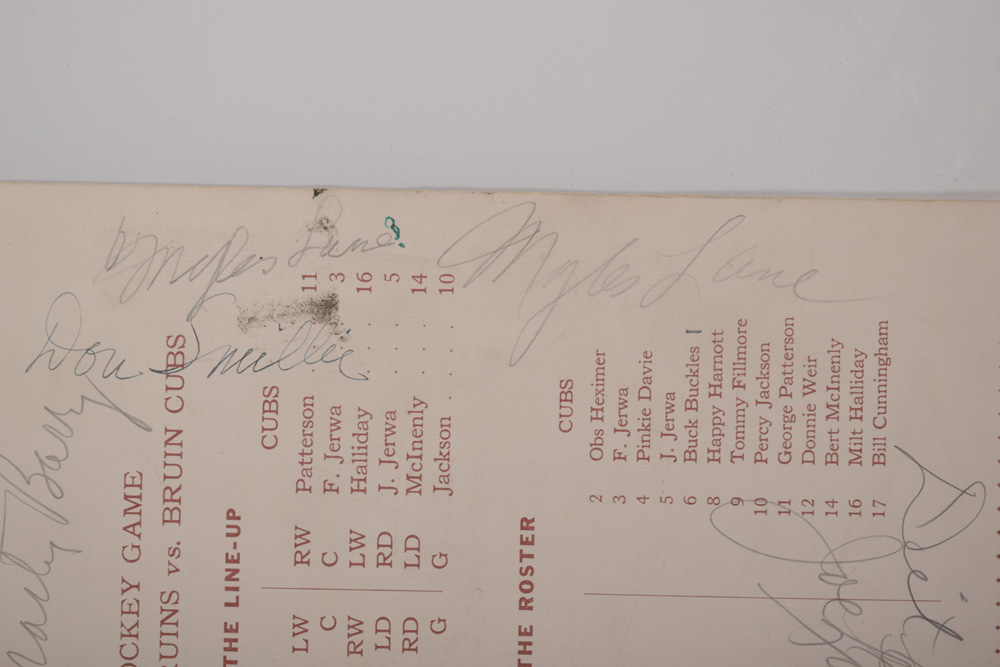 OCKEY GAME
RUINS vs. BRUIN CUBS
THE LINE-UP
CUBS
LW RW Patterson . . . 11
C C F. Jerwa . . . 3
RW LW Halliday . . . 16
LD RD J. Jerwa . . . 5
RD LD McInenly . . . 14
G G Jackson . . . 10
THE ROSTER
CUBS
2 Obs Heximer
3 F. Jerwa
4 Pinkie Davie
5 J. Jerwa
6 Buck Buckles
8 Happy Harnott
9 Tommy Fillmore
10 Percy Jackson
11 George Patterson
12 Donnie Weir
14 Bert McInenly
16 Milt Halliday
17 Bill Cunningham
Myles Lane
Myles Lane
Don Smillie